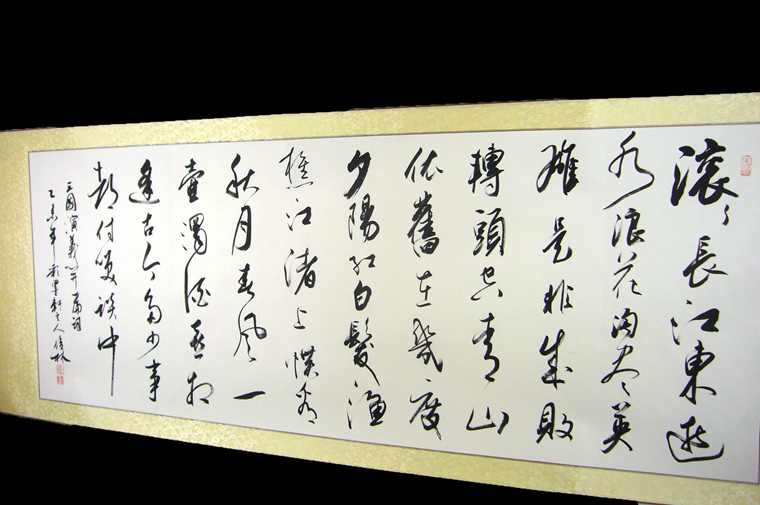 滚々長江東逝
水浪花淘尽英
雄是非成敗
轉頭空青山
依舊在幾度
夕陽紅白髮漁
樵江渚上慣看
秋月春風一
壺濁酒喜相
逢古今多少事
都付笑談中
三國演義開篇詞
乙未年 人俊林